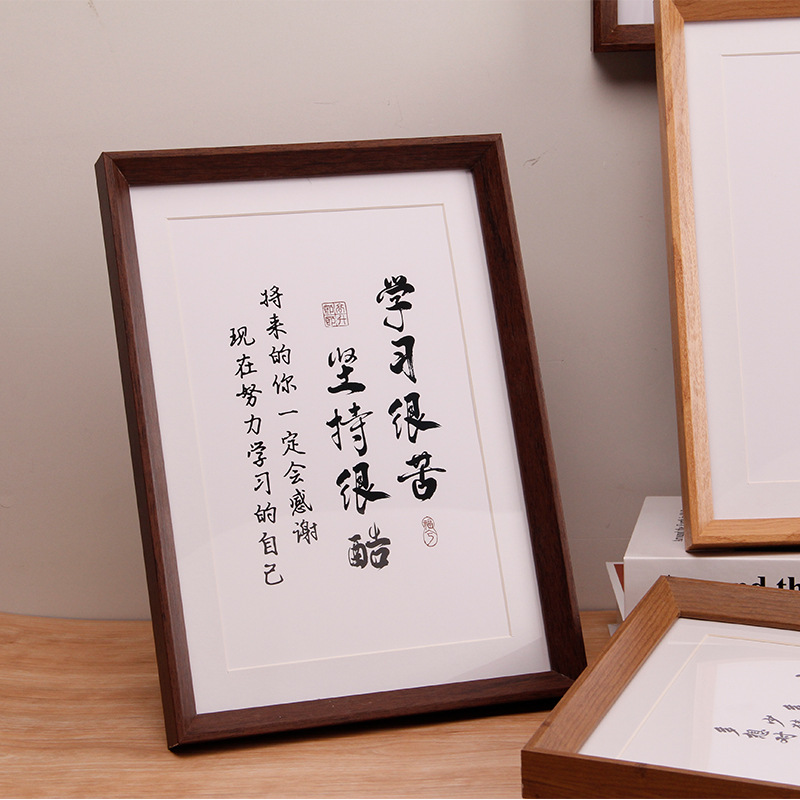 学习很苦
坚持很酷
将来的你一定会感谢
现在努力学习的自己
and th